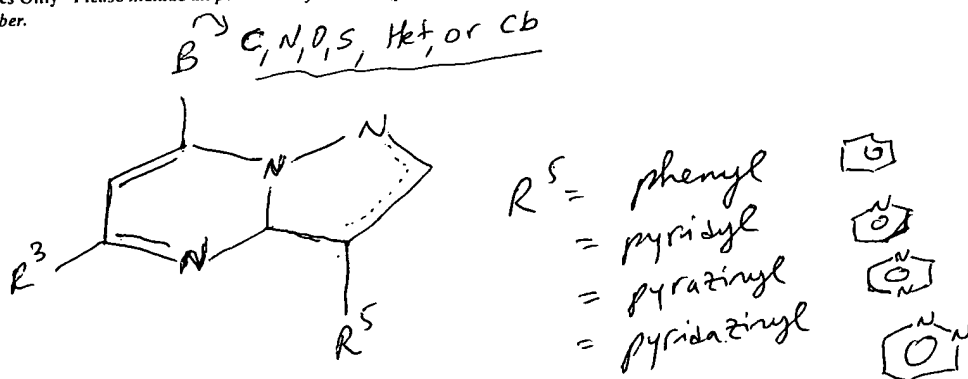 ber.
B C, N, O, S, Het, or Cb
N
N
N
R³
R⁵
R⁵ = phenyl
= pyridyl
N
= pyrazinyl
N
N
= pyridazinyl
N
N